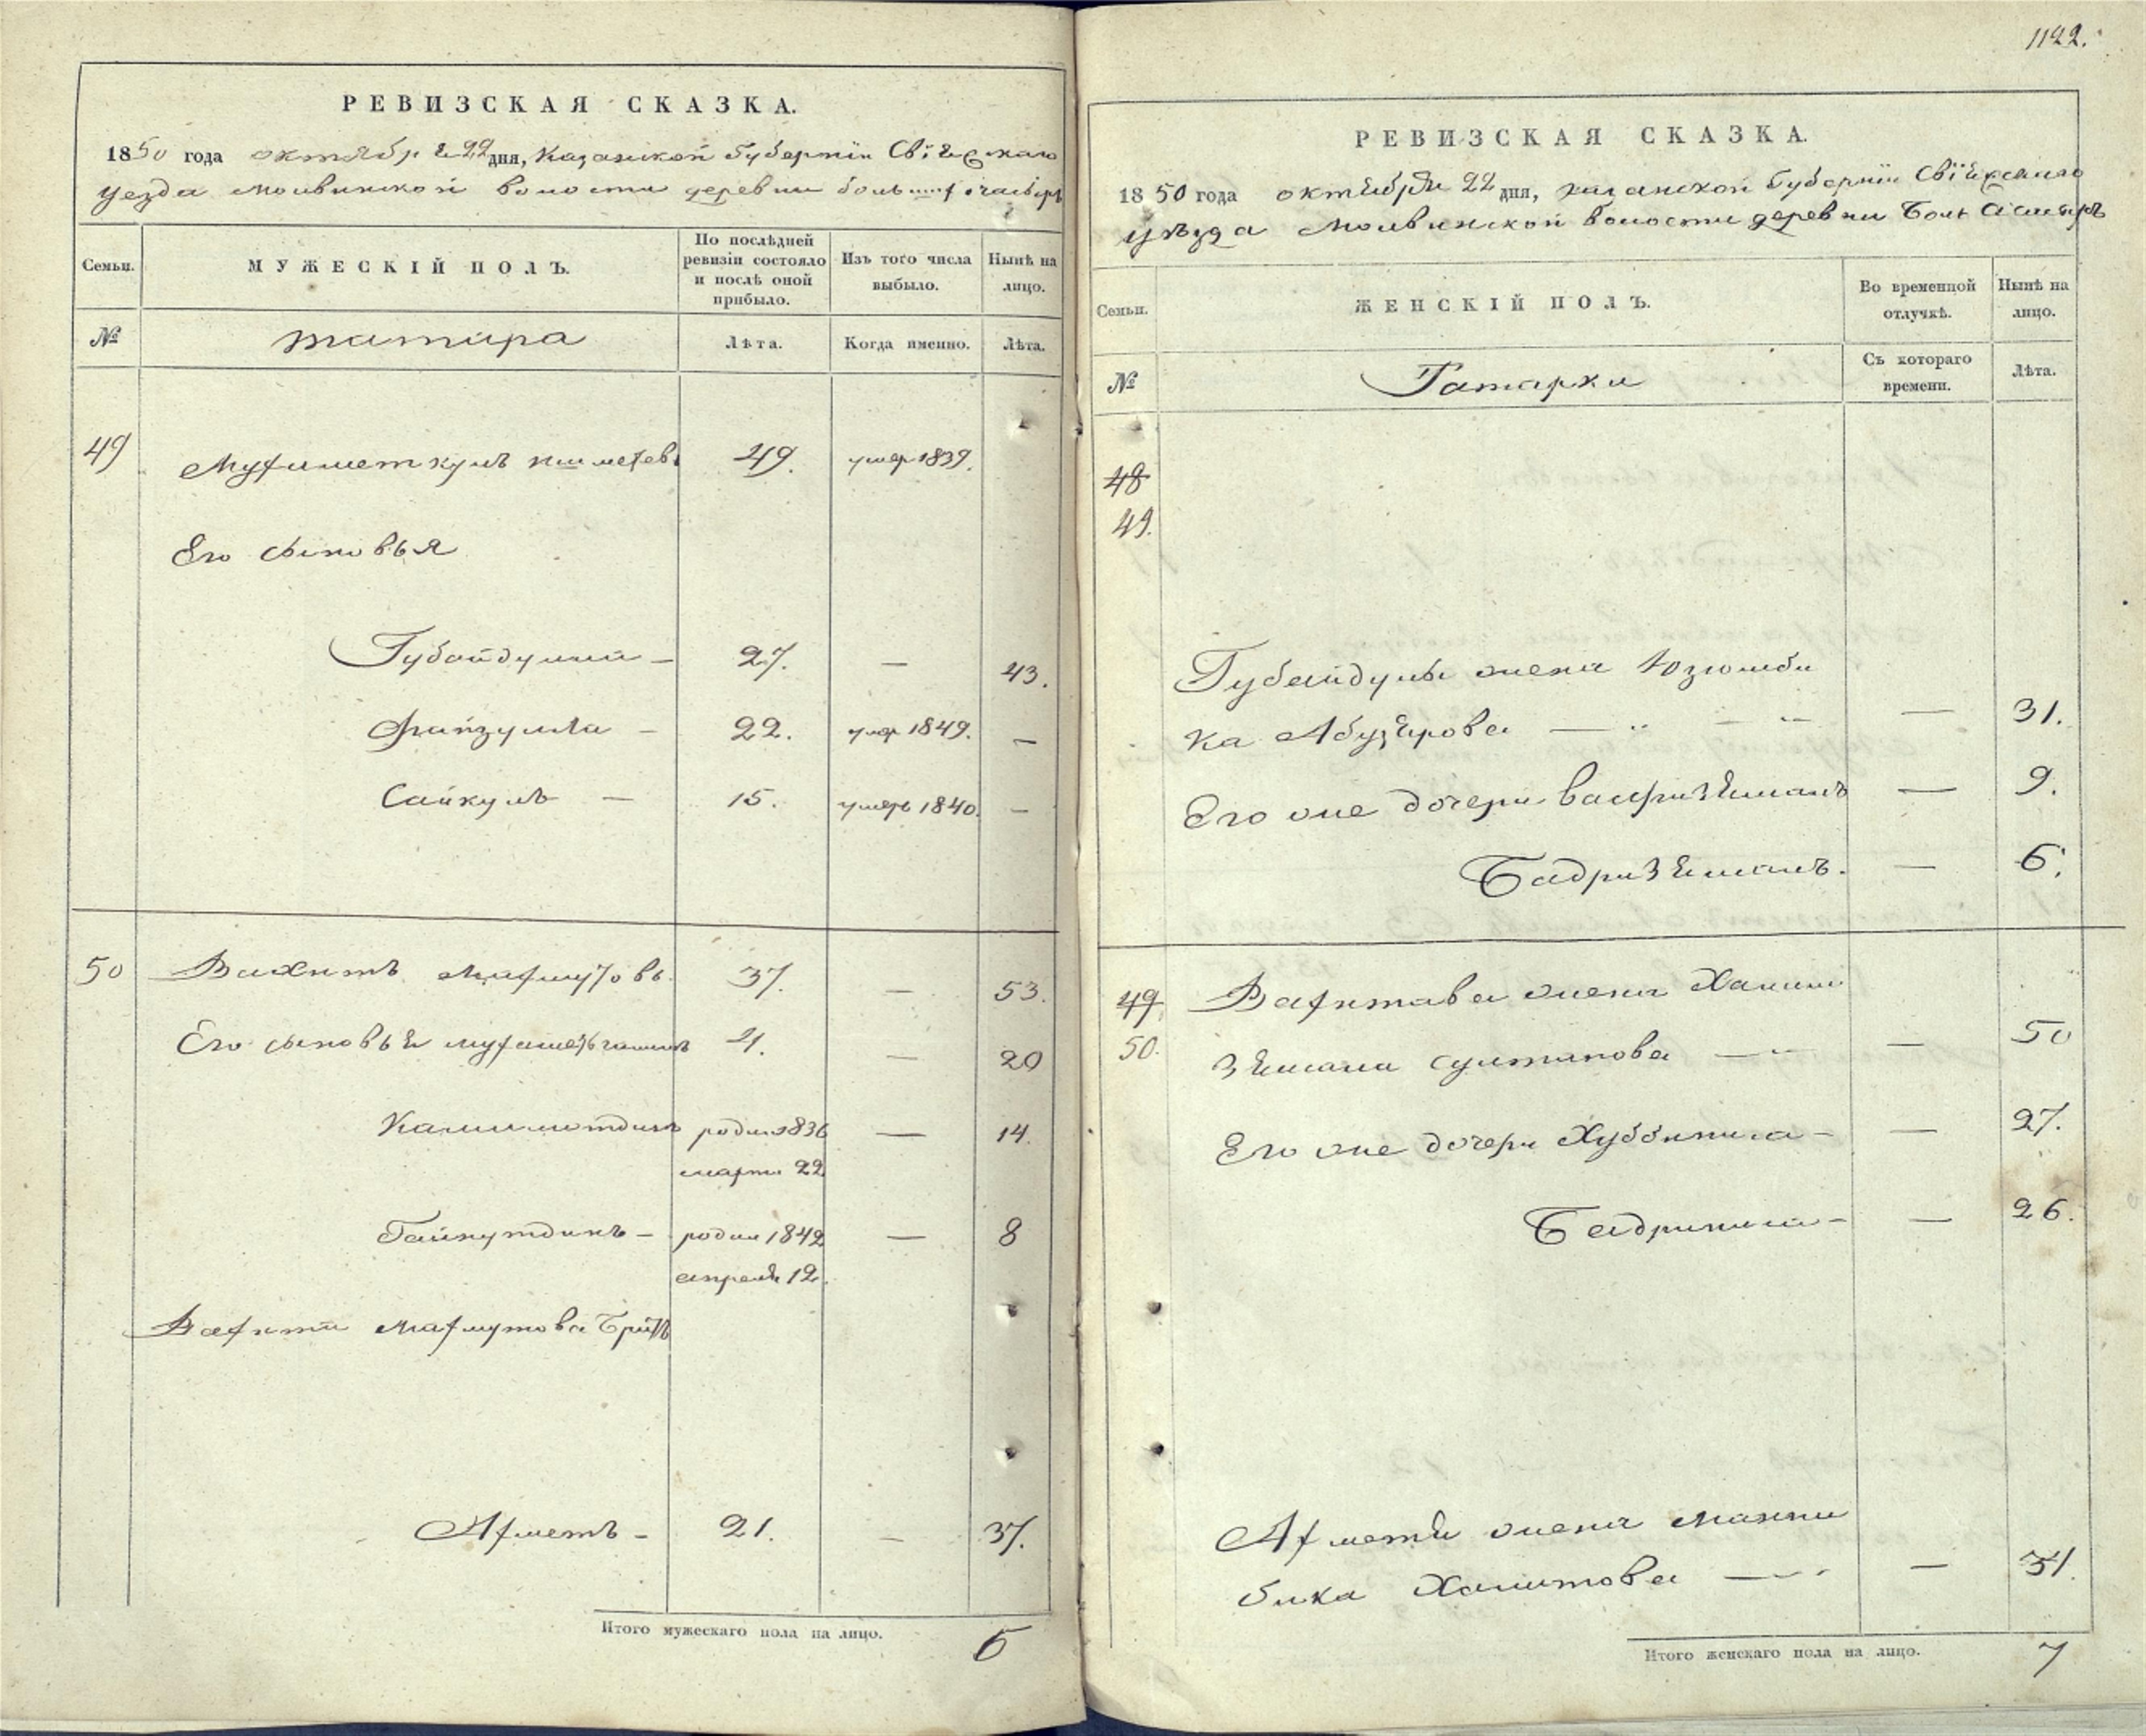 1122.
РЕВИЗСКАЯ СКАЗКА.
1850 года октября 22 дня, Казанской Губернiи Свiяжскаго
уезда Молвинской волости деревни
Семьи.
МУЖЕСКIЙ ПОЛЪ.
По послѣдней ревизiи состояло и послѣ оной прибыло.
Изъ того числа выбыло.
Нынѣ на лицо.
№
татара
Лѣта.
Когда именно.
Лѣта.
49 49. умер 1839.
Его сыновья
Губайдулла — 27. — 43.
Файзулла — 22. умер 1849. —
Сайкулъ — 15. умеръ 1840. —
50 Вахитъ Махмутовъ 37. — 53.
Его сыновья 4. — 20
родил 1836 — 14.
марта 22
Гайнутдинъ — родил 1842 — 8
апреля 12.
Вахита Махмутова братъ
Ахметъ — 21. — 37.
Итого мужескаго пола на лицо. 6
РЕВИЗСКАЯ СКАЗКА.
1850 года октября 22 дня, казанской Губернiи Свiяжскаго
уѣзда Молвинской волости деревни Бол
Семьи.
ЖЕНСКIЙ ПОЛЪ.
Во временной отлучкѣ.
Нынѣ на лицо.
№
Татарки
Съ котораго времени.
Лѣта.
48
49.
Губайдулы жена Юзюмби
ка Абузярова — — 31.
Его же дочери — 9.
Бадризяманъ. — 6.
49. Вахитава жена
50. зямана султанова — — 50
Его же дочери Хуббиниса — — 27.
Бадриниса — — 26.
Ахметя жена
бика Халитова — — 31.
Итого женскаго пола на лицо. 7